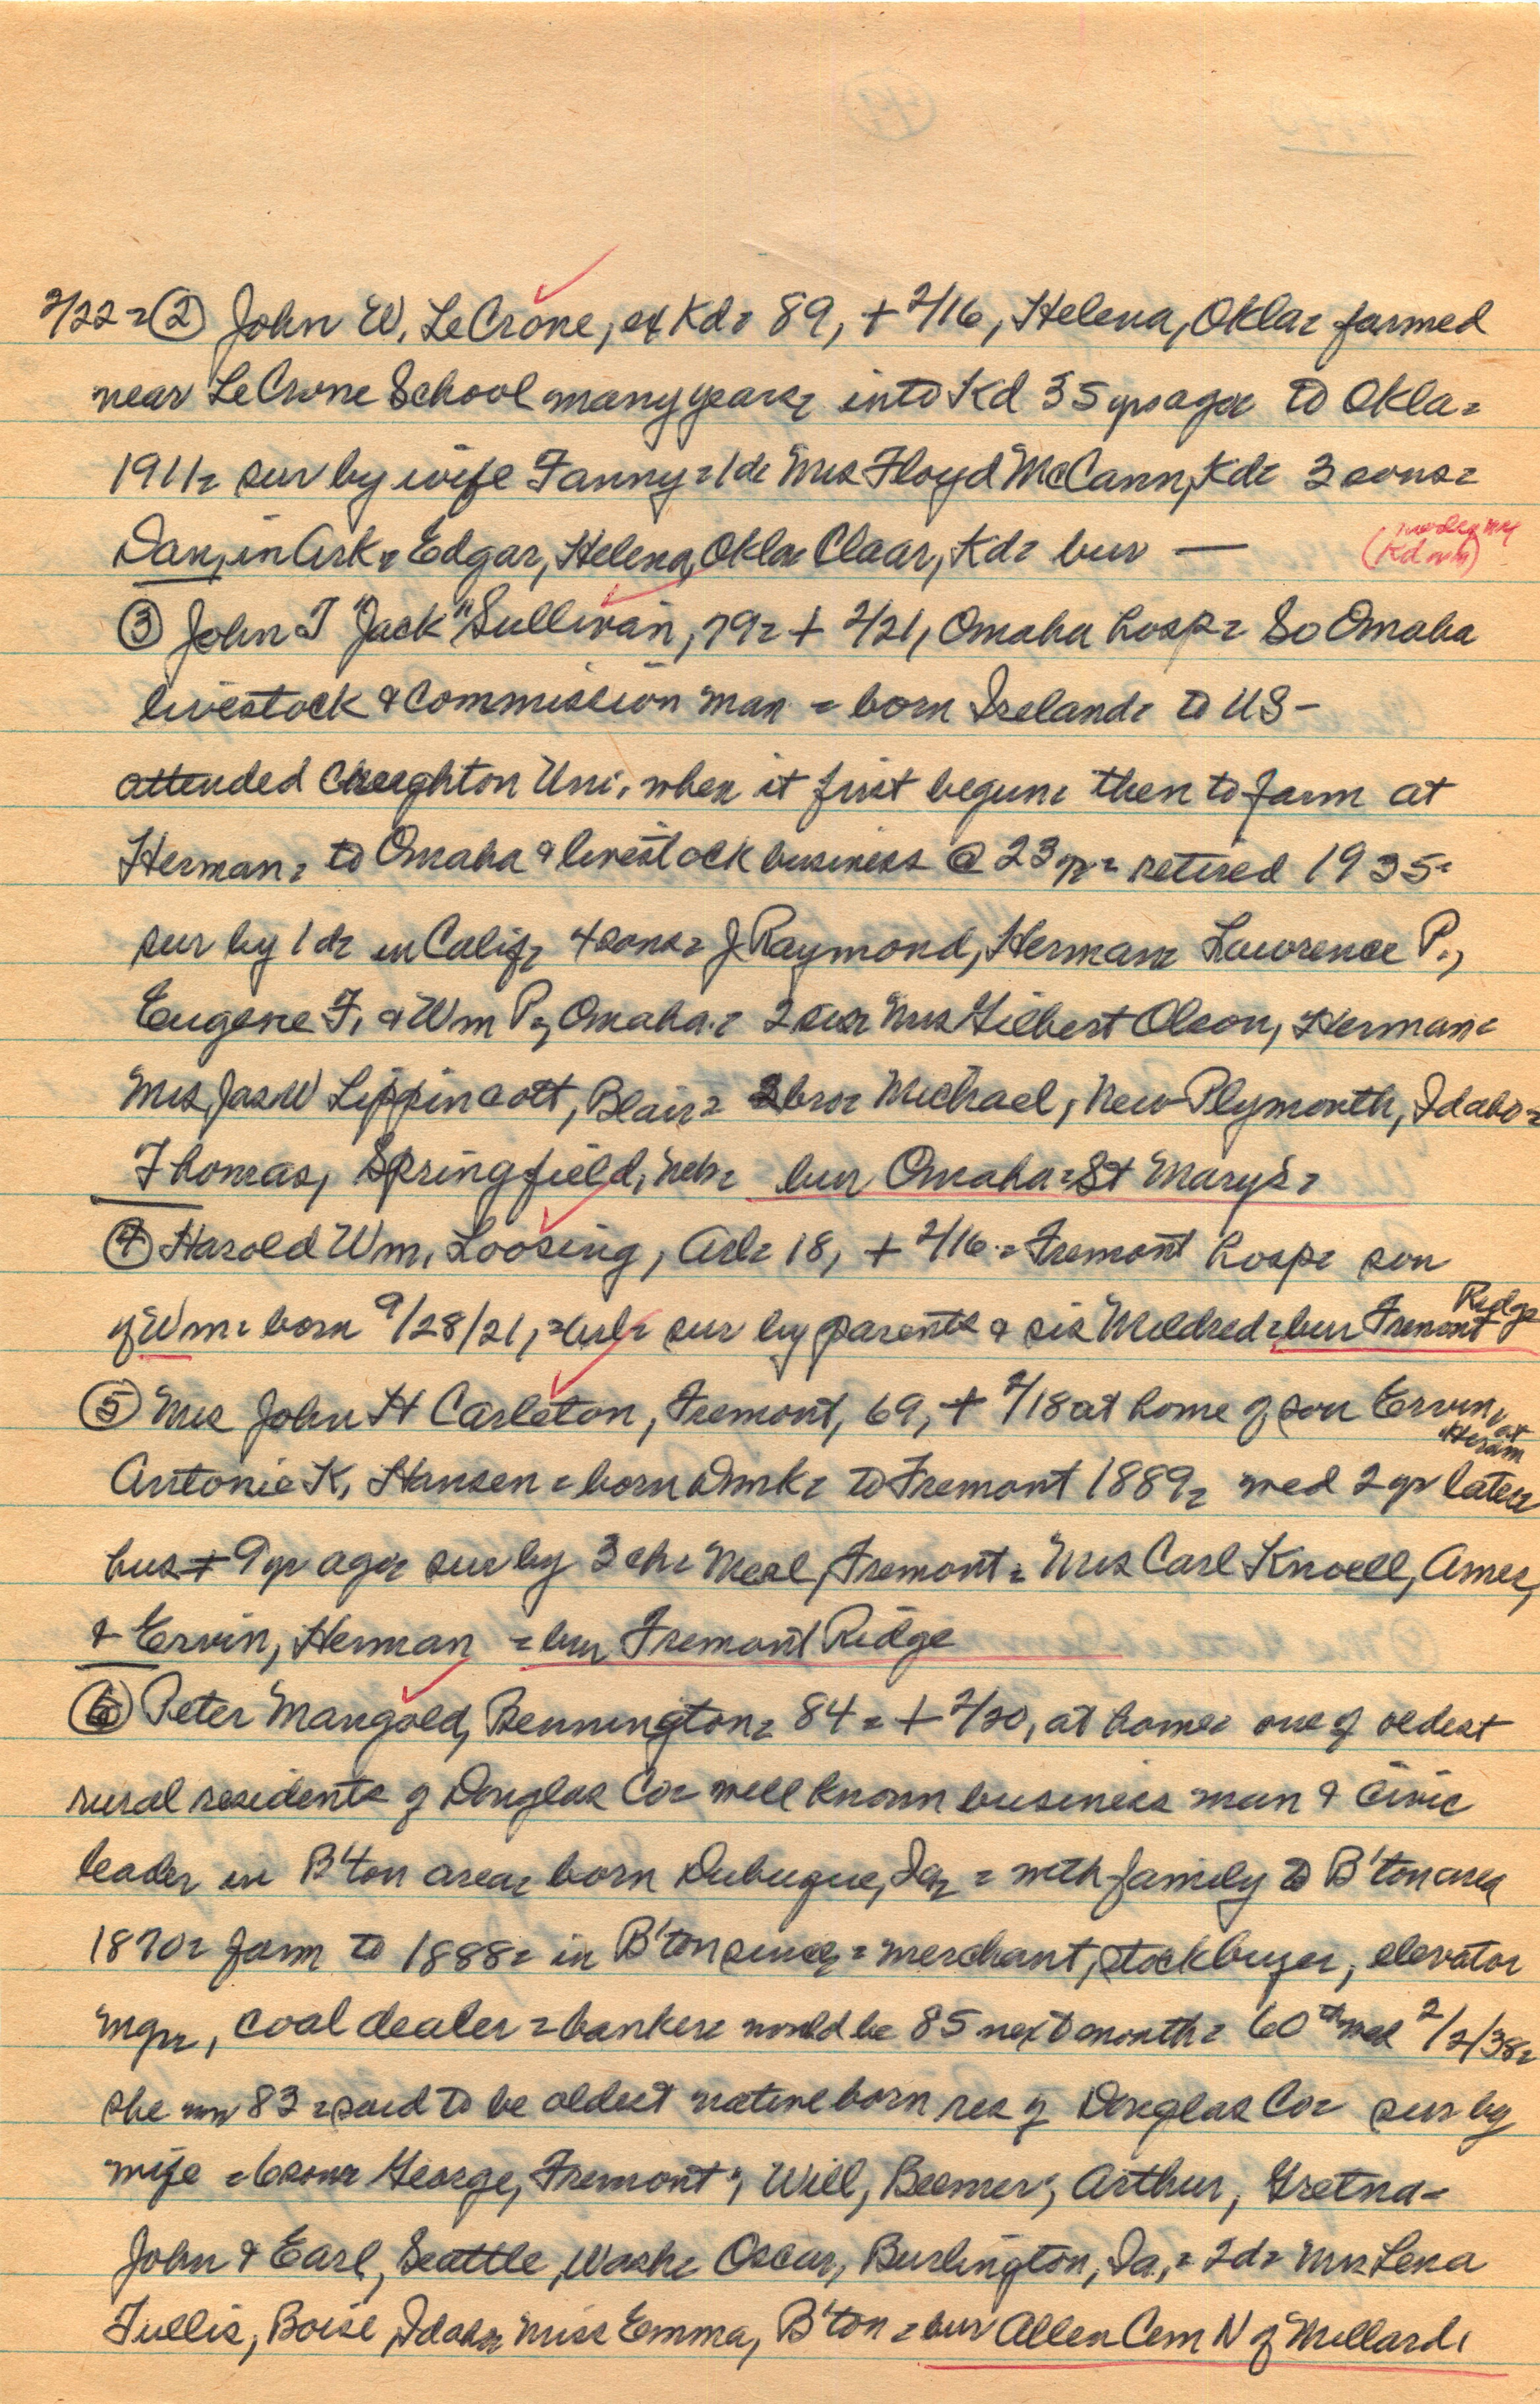 2/22 = ② John W. LeCrone, ex Kd = 89, + 2/16, Helena, Okla = farmed
near LeCrone School many years = into Kd 35 yrs ago = to Okla =
1911 = sur by wife Fanny = 1 d = Mrs Floyd McCann, Kd = 3 sons =
Dan, in Ark = Edgar, Helena, Okla = Claar, Kd = bur —
(Kd
③ John T "Jack" Sullivan, 79 = + 2/21, Omaha hosp = So Omaha
livestock & Commission man = born Ireland = to US -
attended Creighton Uni. when it first begun = then to farm at
Herman = to Omaha & livestock business @ 23 yr = retired 1935 =
sur by 1 d = in Calif = 4 sons = J Raymond, Herman = Lawrence P.,
Eugene F. & Wm P, Omaha. = 2 sis = Mrs Gilbert Olson, Herman =
Mrs Jas W Lippincott, Blair = 2 bro = Michael, New Plymouth, Idaho =
Thomas, Springfield, Neb = bur Omaha = St Mary's =
④ Harold Wm. Loosing, Arl = 18, + 2/16 = Fremont hosp = son
of Wm = born 9/28/21, = Arl = sur by parents & sis Mildred = bur Fremont Ridge
⑤ Mrs John H Carleton, Fremont, 69, + 2/18 at home of son Ervin, at Herm
Antonie K. Hansen = born Dmk = to Fremont 1889 = med 2 yr later =
hus + 9 yr ago = sur by 3 ch = Merl, Fremont = Mrs Carl Knoell, Ames,
& Ervin, Herman = bur Fremont Ridge
⑥ Peter Mangold, Bennington = 84 = + 2/20, at home = one of oldest
rural residents of Douglas Co = well known business man & civic
leader in B'ton area = born Dubuque, Ia = with family to B'ton area
1870 = farm to 1888 = in B'ton since = merchant, stockbuyer, elevator
mgr, coal dealer = banker = would be 85 next month = 60th wed 2/2/38 =
she nw 83 = said to be oldest native born res of Douglas Co = sur by
wife = 6 sons = George, Fremont; Will, Beemer; Arthur, Gretna =
John & Earl, Seattle, Wash = Oscar, Burlington, Ia, = 2 d = Mrs Lena
Tullis, Boise, Idaho = Miss Emma, B'ton = bur Allen Cem N of Millard.